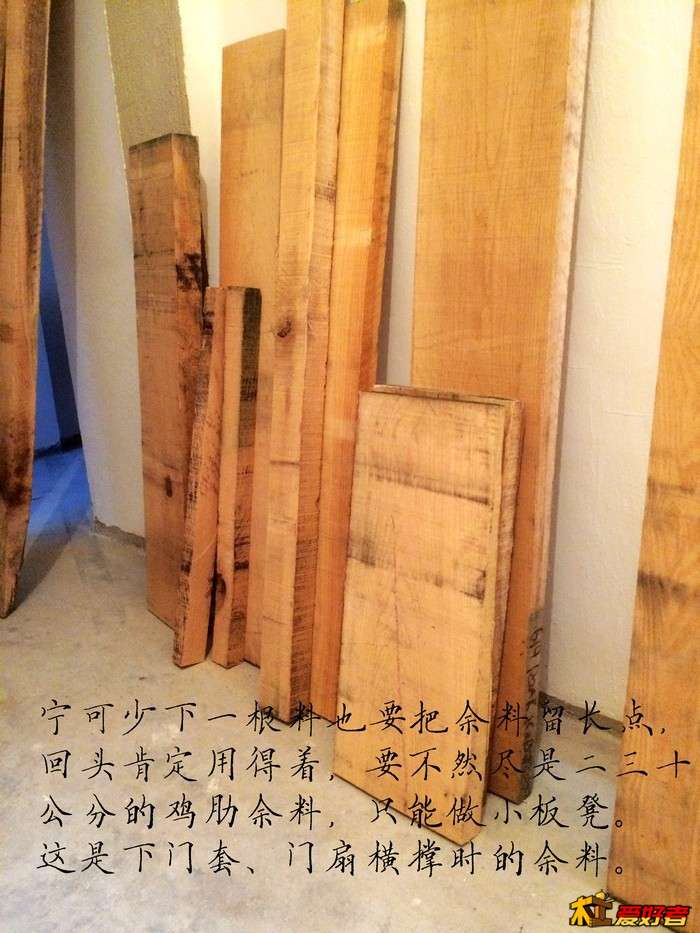 宁可少下一根料也要把余料留长点,
回头肯定用得着，要不然尽是二三十
公分的鸡肋余料，只能做小板凳。
这是下门套、门扇横撑时的余料。
木工爱好者